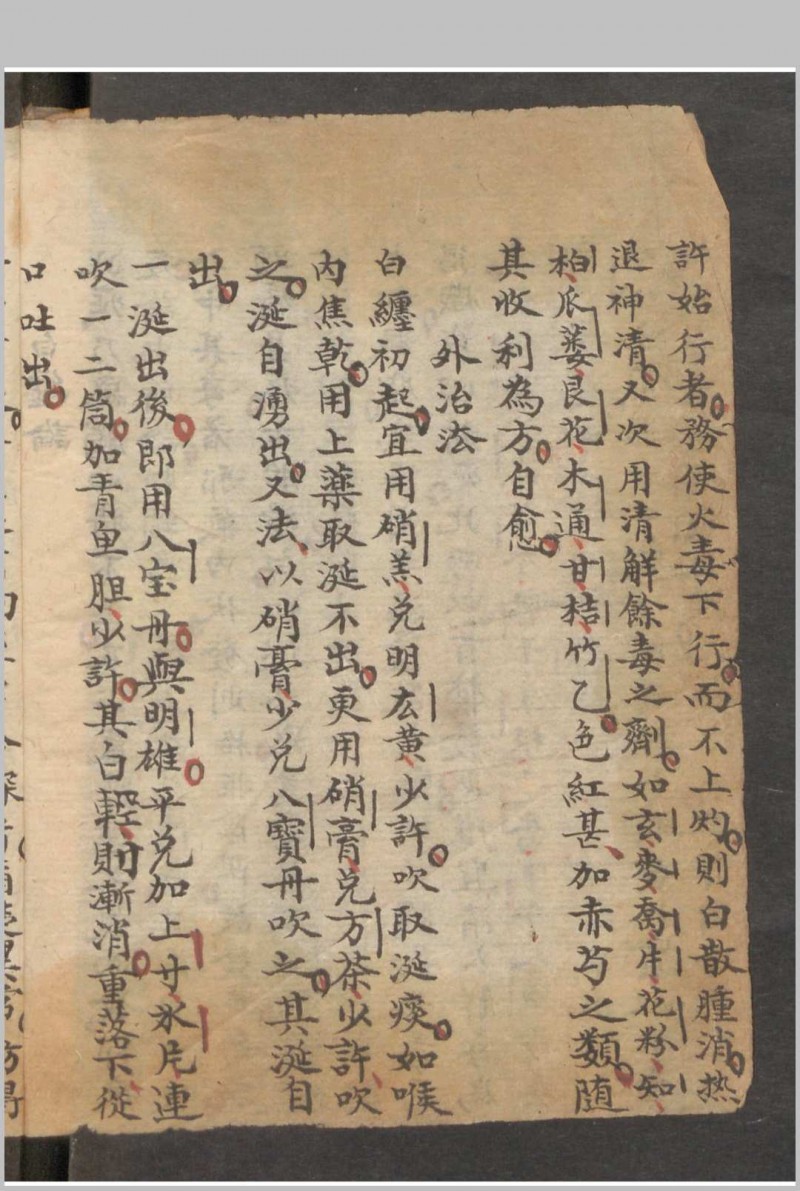 許始行者務使火毒下行而不上灼則白散腫消热
退神清又次用清解餘毒之劑如玄麥喬牛花粉知
柏瓜蒌良花木通甘桔竹乙色紅甚加赤芍之類随
其收利為方自愈
外治法
白纏初起宜用硝羔兑明広黄少許吹取涎痰如喉
内焦乾用上薬取涎不出更用硝膏兑方茶少許吹
之涎自湧出又法以硝膏少兑八寶丹吹之其涎自
出
一涎出後即用八宝丹與明雄平兑加上寸氷片連
吹一二筒加青鱼胆少許其白輕則漸消重落下從
口吐出